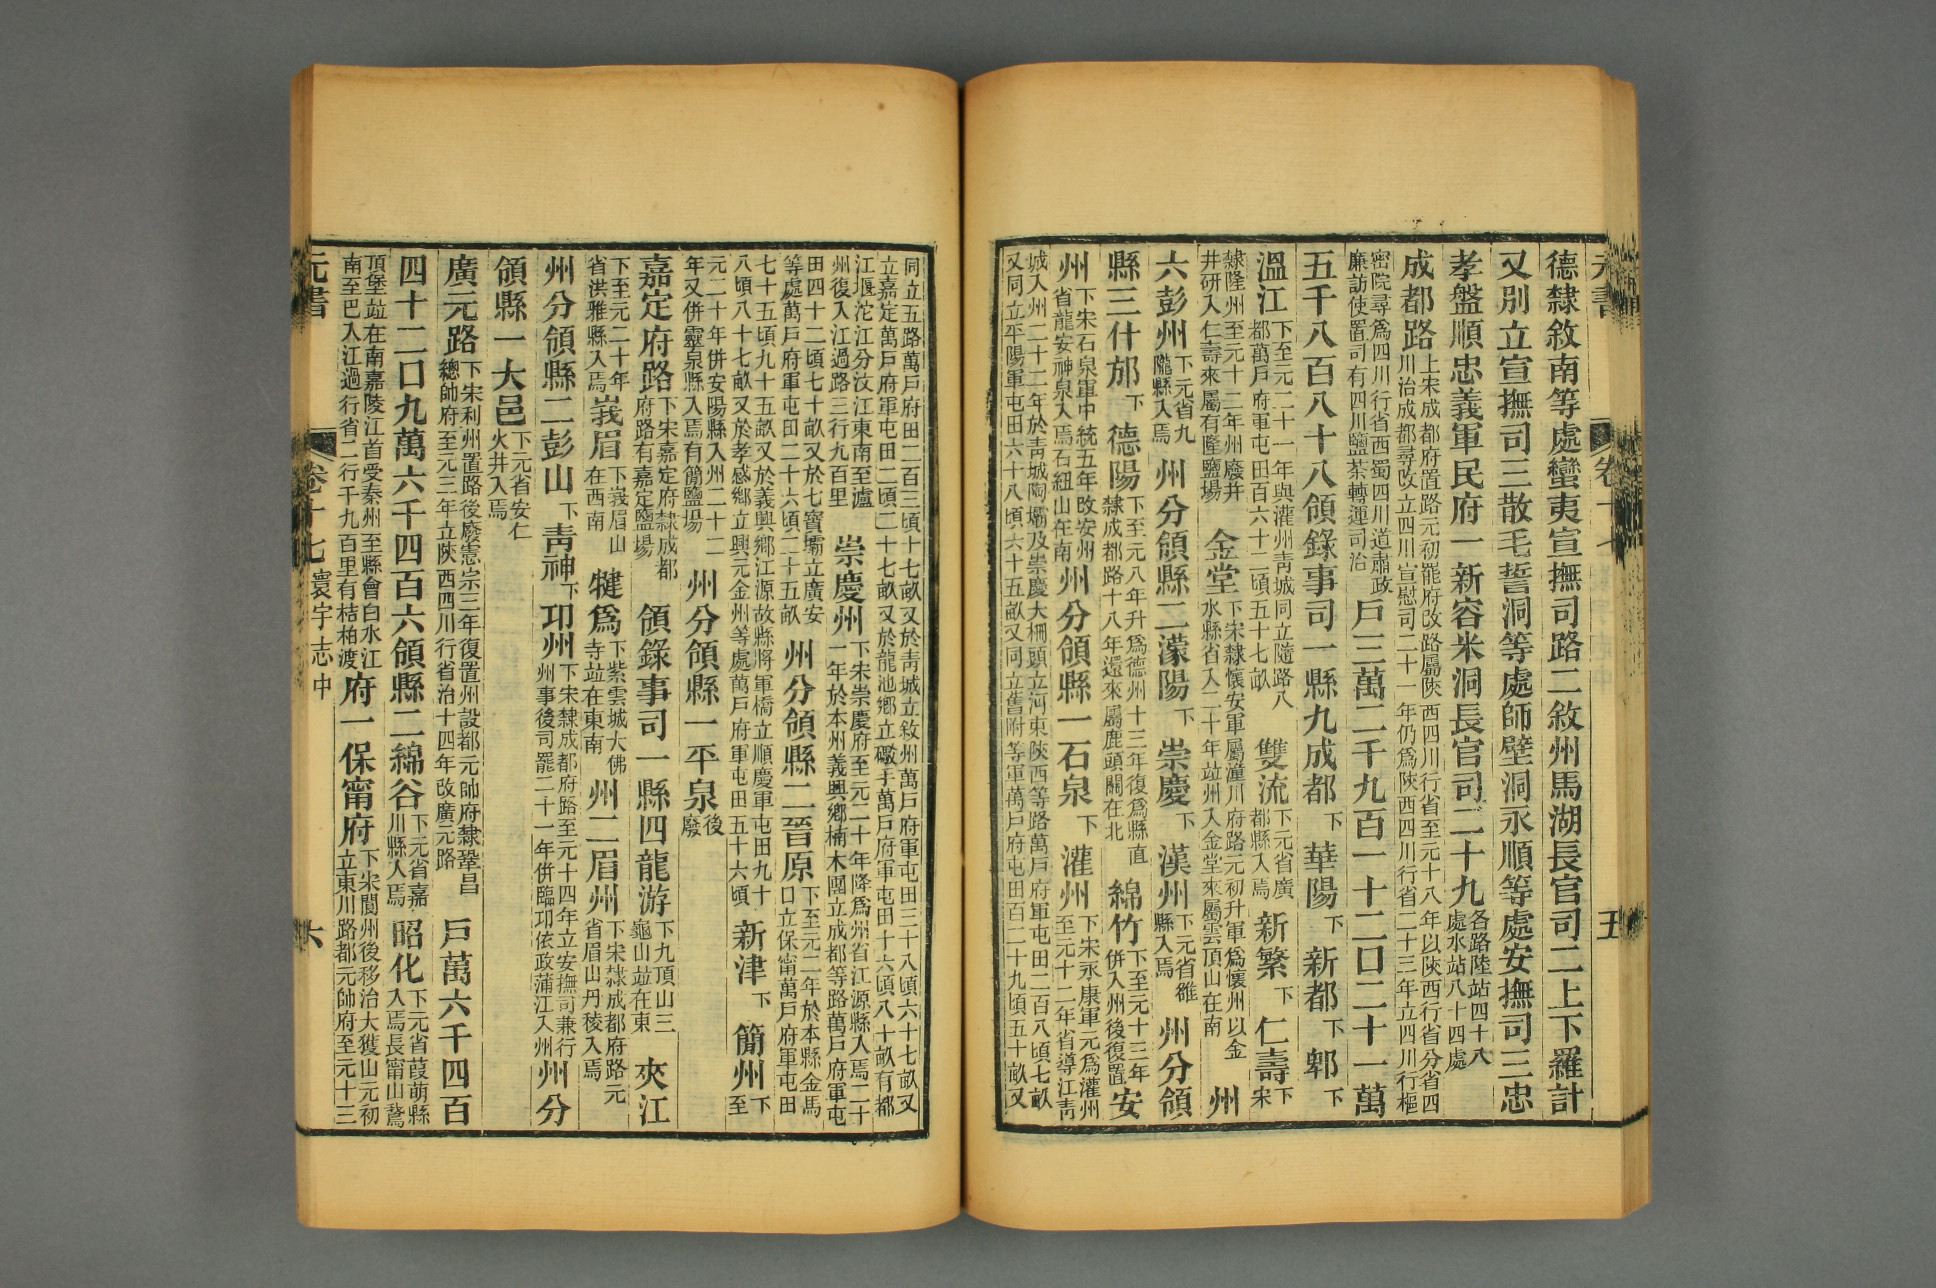 德隸敘南等處蠻夷宣撫司路二敘州馬湖長官司二上下羅計
又別立宣撫司三散毛誓洞等處師壁洞永順等處安撫司三忠
孝盤順忠義軍民府一新容米洞長官司二十九各路陸站四十八處水站八十四處
成都路上宋成都府置路元初罷府改路屬陝西四川行省至元十八年以陝西行省分省四川治成都尋改立四川宣慰司二十一年仍爲陝西四川行省二十三年立四川行樞
密院尋爲四川行省西蜀四川道肅政廉訪使置司有四川鹽茶轉運司治戶三萬二千九百一十二口二十一萬
五千八百八十八領錄事司一縣九成都下華陽下新都下郫下
溫江下至元二十一年與灌州靑城同立隨路八都萬戶府軍屯田百六十二頃五十七畝雙流下元省廣都縣入焉新繁下仁壽下宋
隸隆州至元十二年州廢并井研入仁壽來屬有隆鹽場金堂下宋隸懷安軍屬潼川府路元初升軍爲懷州以金水縣省入二十年竝州入金堂來屬雲頂山在南州
六彭州下元省九隴縣入焉州分領縣二濛陽下崇慶下漢州下元省雒縣入焉州分領
縣三什邡下德陽下至元八年升爲德州十三年復爲縣直隸成都路十八年還來屬鹿頭關在北綿竹下至元十三年併入州後復置安
州下宋石泉軍中統五年改安州省龍安神泉入焉石紐山在南州分領縣一石泉下灌州下宋永康軍元爲灌州至元十二年省導江靑
城入州二十二年於靑城陶壩及崇慶大柵頭立河東陝西等路萬戶府軍屯田二百八頃七畝又同立平陽軍屯田六十八頃六十五畝又同立舊附等軍萬戶府屯田百二十九頃五十畝又
同立五路萬戶府田二百三頃十七畝又於靑城立敘州萬戶府軍屯田三十八頃六十七畝又立嘉定萬戶府軍屯田二頃二十七畝又於龍池鄉立礮手萬戶府軍屯田十六頃八十畝有都
江堰沱江分汶江東南至瀘州復入江過路三行九百里崇慶州下宋崇慶府至元二十年降爲州省江源縣入焉二十一年於本州義興鄉楠木團立成都等路萬戶府軍屯
田四十二頃七十畝又於七寶壩立廣安等處萬戶府軍屯田二十六頃二十五畝州分領縣二晉原下至元二年於本縣金馬口立保甯萬戶府軍屯田
七十五頃九十五畝又於義興鄉江源故縣將軍橋立順慶軍屯田九十八頃八十七畝又於孝感鄉立興元金州等處萬戶府軍屯田五十六頃新津下簡州下至
元二十年併安陽縣入州二十二年又併靈泉縣入焉有簡鹽場州分領縣一平泉後廢
嘉定府路下宋嘉定府隸成都府路有嘉定鹽場領錄事司一縣四龍游下九頂山三龜山竝在東夾江
下至元二十年省洪雅縣入焉峩眉下峩眉山在西南犍爲下紫雲城大佛寺竝在東南州二眉州下宋隸成都府路元省眉山丹稜入焉
州分領縣二彭山下靑神下邛州下宋隸成都府路至元十四年立安撫司兼行州事後司罷二十一年併臨邛依政蒲江入州州分
領縣一大邑下元省安仁火井入焉
廣元路下宋利州置路後廢憲宗三年復置州設都元帥府隸鞏昌總帥府至元三年立陝西四川行省治十四年改廣元路戶萬六千四百
四十二口九萬六千四百六領縣二綿谷下元省嘉川縣入焉昭化下元省葭萌縣入焉長甯山鶩
頂堡竝在南嘉陵江首受秦州至縣會白水江南至巴入江過行省二行千九百里有桔柏渡府一保甯府下宋閬州後移治大獲山元初立東川路都元帥府至元十三
元書
卷十七寰宇志中
六